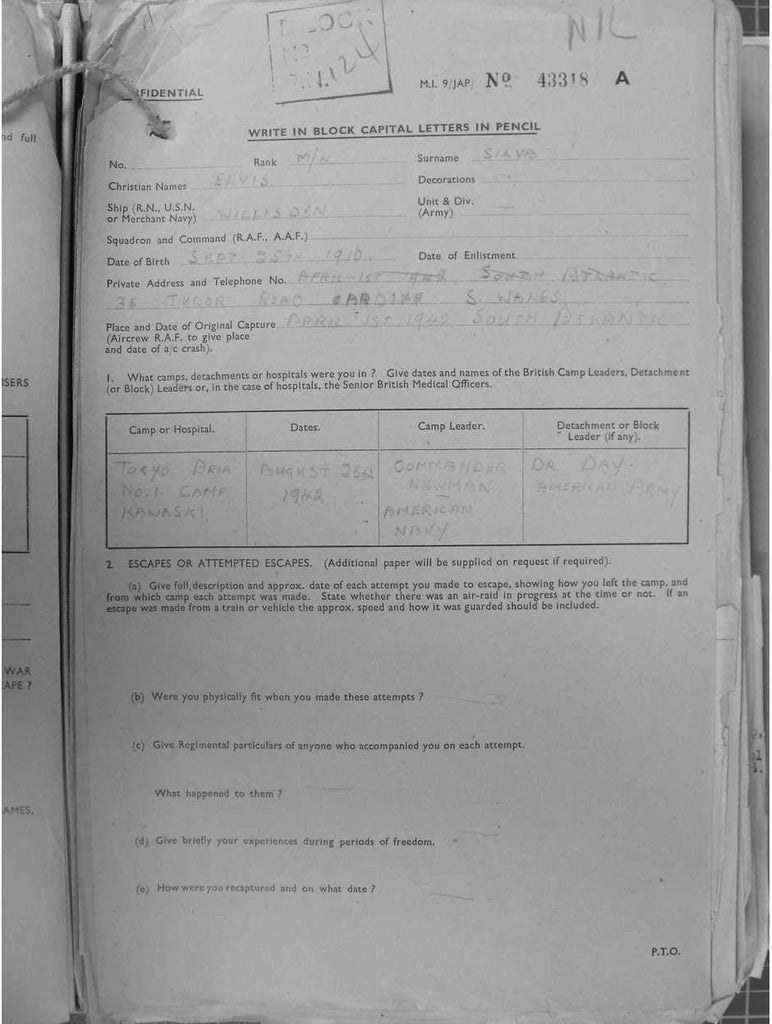 NIL
BLOCK
M.I. 9/JAP/ No 43318 A
FIDENTIAL
WRITE IN BLOCK CAPITAL LETTERS IN PENCIL
nd full
No. Rank M/N Surname SILVA
Christian Names ELVIS Decorations —
Ship (R.N., U.S.N. or Merchant Navy) WILLISDEN Unit & Div. (Army) —
Squadron and Command (R.A.F., A.A.F.)
Date of Birth SEPT 25TH 1910. Date of Enlistment
Private Address and Telephone No. APRIL 1ST 1942, SOUTH ATLANTIC
35 TUDOR ROAD CARDIFF S. WALES.
Place and Date of Original Capture APRIL 1ST 1942 SOUTH ATLANTIC
(Aircrew R.A.F. to give place
and date of a/c crash).
1. What camps, detachments or hospitals were you in ? Give dates and names of the British Camp Leaders, Detachment
(or Block) Leaders or, in the case of hospitals, the Senior British Medical Officers.
ISERS
Camp or Hospital. Dates. Camp Leader. Detachment or Block Leader (if any).
TOKYO ARIA AUGUST 25th COMMANDER DR. DAY.
No. 1. CAMP 1942 NEWMAN AMERICAN ARMY
KAWASKI. AMERICAN
NAVY
2. ESCAPES OR ATTEMPTED ESCAPES. (Additional paper will be supplied on request if required).
(a) Give full description and approx. date of each attempt you made to escape, showing how you left the camp, and
from which camp each attempt was made. State whether there was an air-raid in progress at the time or not. If an
escape was made from a train or vehicle the approx. speed and how it was guarded should be included.
WAR
APE ?
(b) Were you physically fit when you made these attempts ?
(c) Give Regimental particulars of anyone who accompanied you on each attempt.
What happened to them ?
AMES.
(d) Give briefly your experiences during periods of freedom.
(e) How were you recaptured and on what date ?
P.T.O.